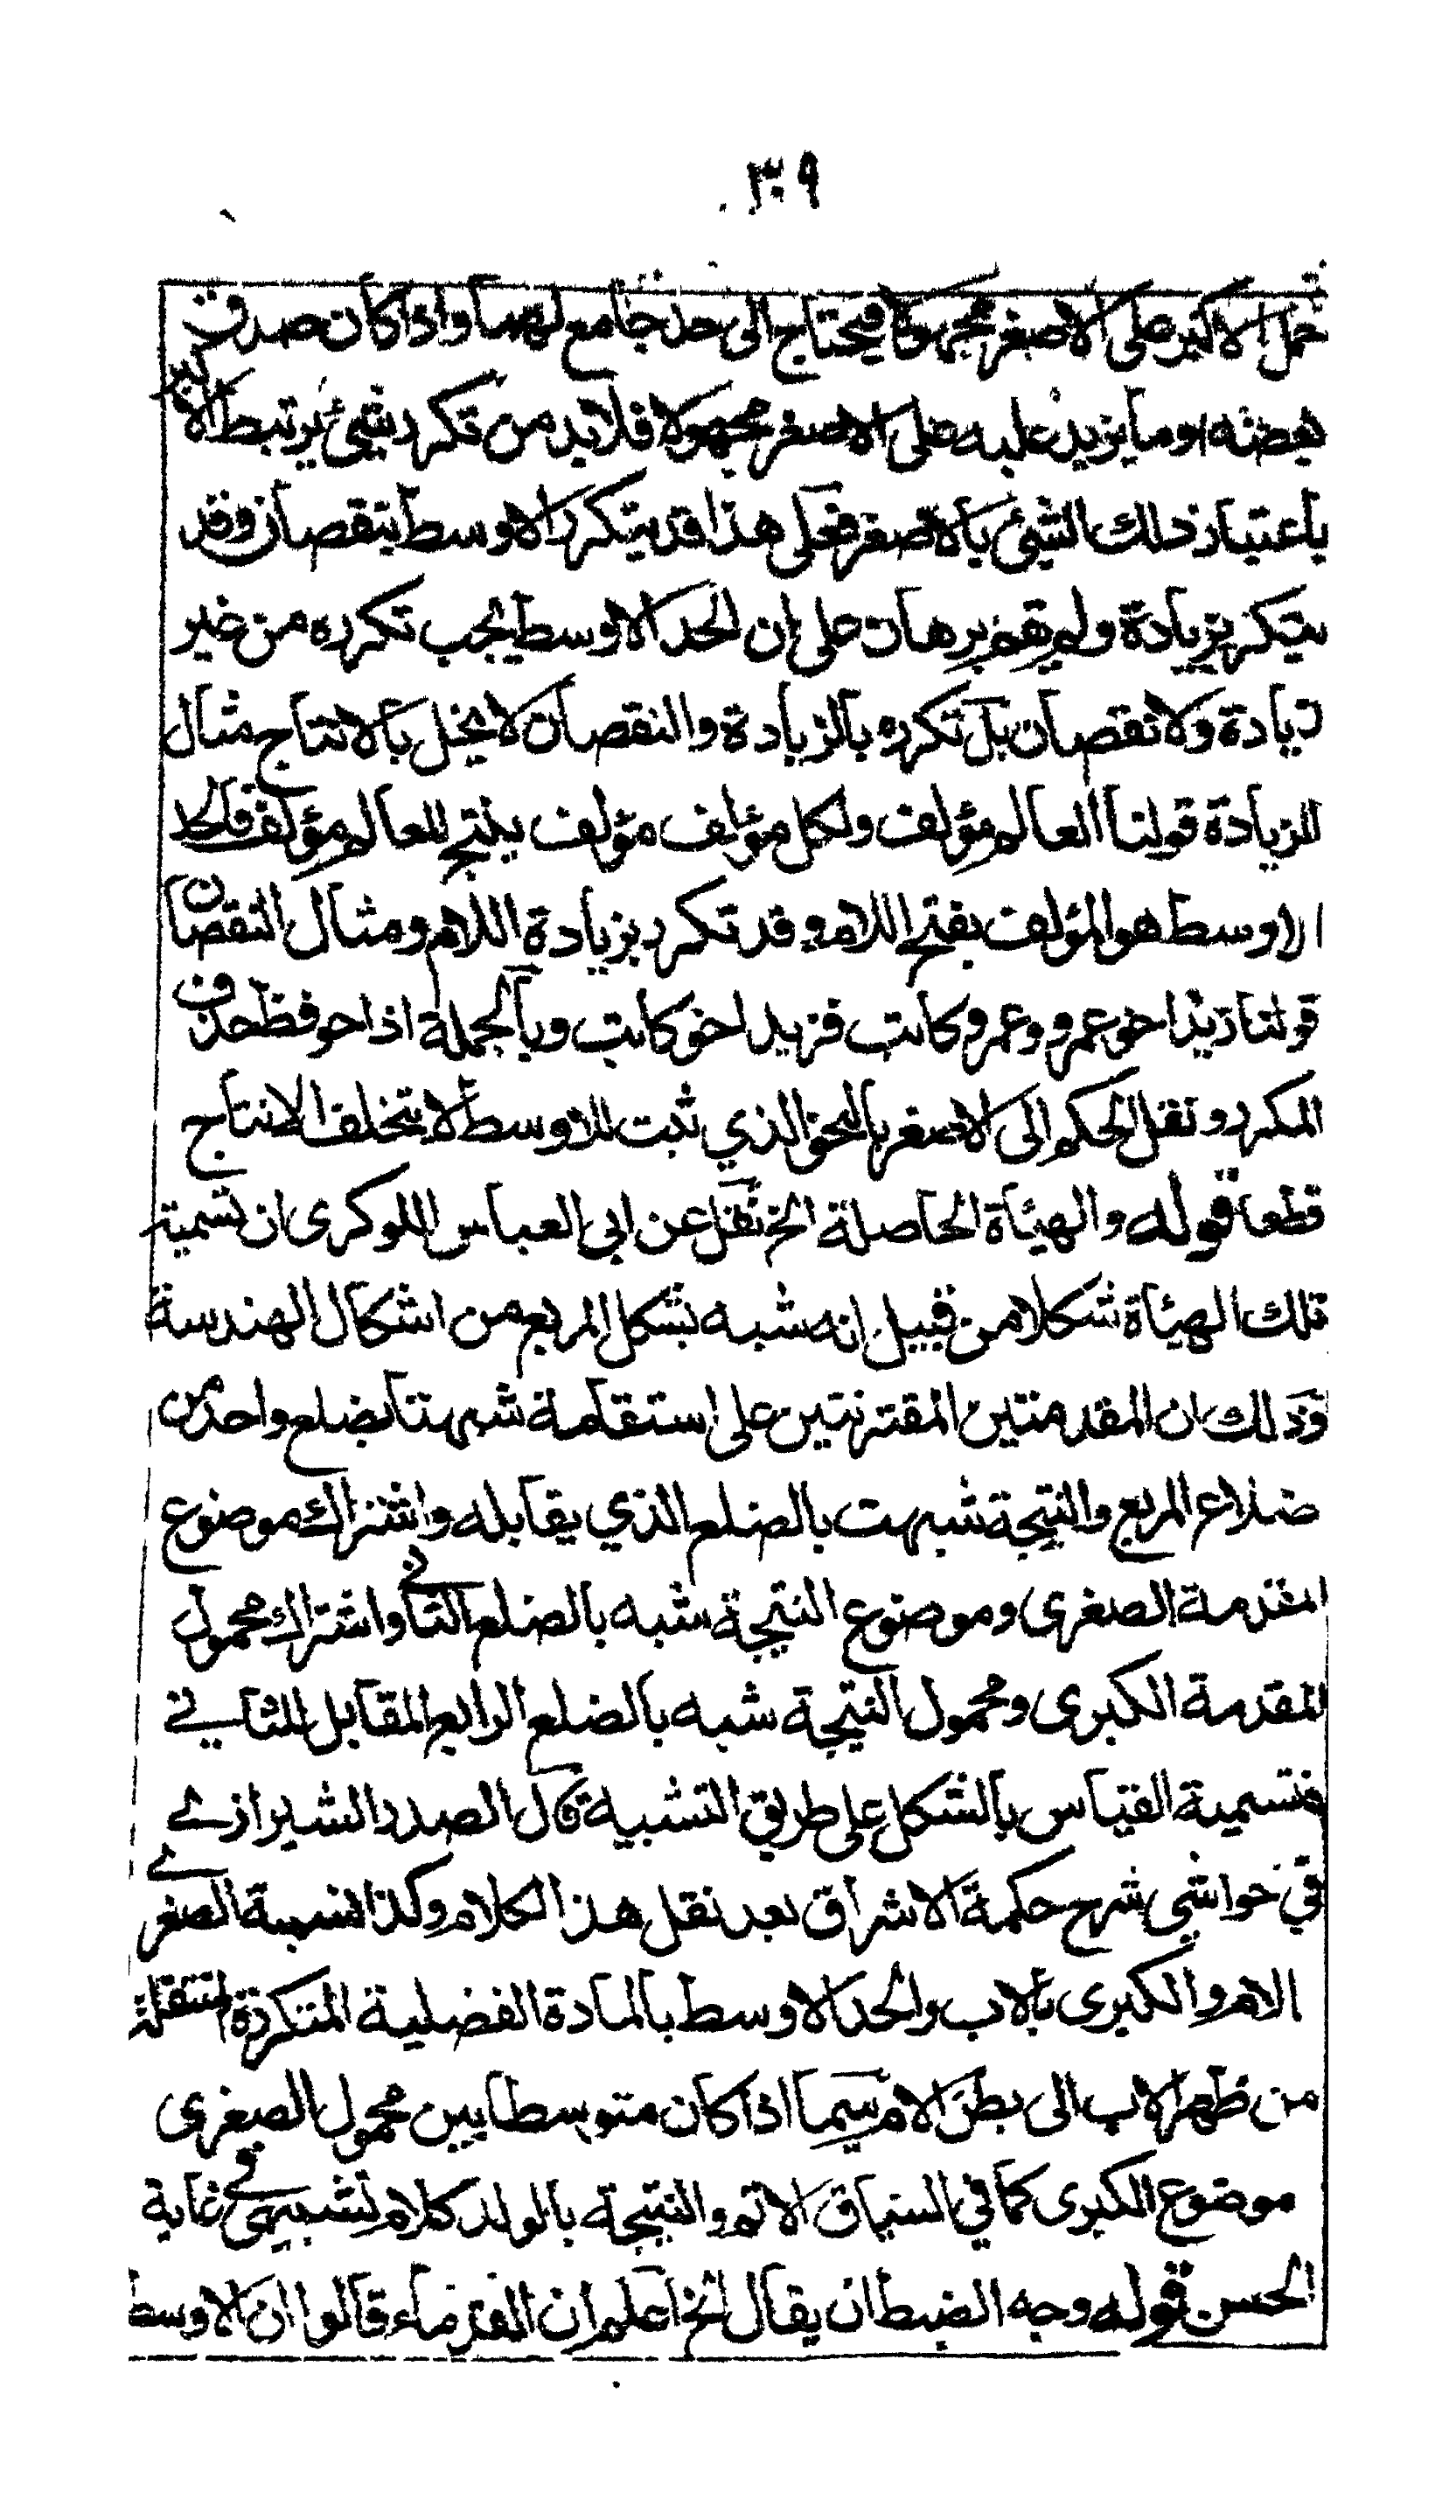 ٣٠٩
حمل الاكبر على الاصغر مجهولا فيحتاج الى حد جامع لهما واذا كان صدق
بعضه او ما يزيد عليه على الاصغر مجهولا فلابد من تكرر شيئ يرتبط الاكبر
باعتبار ذلك الشيئ بالاصغر فعلى هذا قد يتكرر الاوسط بنقصان وقد
يتكرر بزيادة ولم يقم برهان على ان الحد الاوسط يجب تكرره من غير
زيادة ولا نقصان بل تكرره بالزيادة والنقصان لا يخل بالانتاج مثال
الزيادة قولنا العالم مؤلف ولكل مؤلف مؤلف ينتج للعالم مؤلف فالحد
الاوسط هو المؤلف بفتح اللام وقد تكرر بزيادة اللام ومثال النقصان
قولنا زيد اخو عمرو وعمرو كاتب فزيد اخو كاتب وبالجملة اذا حوفظ حذف
المكرر ونقل الحكم الى الاصغر بالنحو الذي ثبت للاوسط لا يتخلف الانتاج
قطعا قوله والهيئاة الحاصلة الخ نقل عن ابي العباس اللوكرى ان تسمية
تلك الهيئاة شكلا من قبيل انه شبه بشكل المربع من اشكال الهندسة
وذلك ان المقدمتين المقترنتين على استقامة شبهتا بضلع واحد من
ضلاع المربع والنتيجة شبهت بالضلع الذي يقابله واشتراك موضوع
المقدمة الصغرى وموضوع النتيجة شبه بالضلع الثانى واشتراك محمول
المقدمة الكبرى ومحمول النتيجة شبه بالضلع الرابع المقابل للثانى
فتسمية القياس بالشكل على طريق التشبيه قال الصدر الشيرازى
في حواشي شرح حكمة الاشراق بعد نقل هذا الكلام وكذا تسمية الصغرى
الام والكبرى بالاب والحد الاوسط بالمادة الفضلية المتكررة المنتقلة
من ظهر الاب الى بطن الام سيما اذا كان متوسطا بين محمول الصغرى
موضوع الكبرى كما في السياق الاتم والنتيجة بالولد كلام تشبيهى في غاية
الحسن قوله وجه الضبط ان يقال الخ اعلم ان القدماء قالوا ان الاوسط